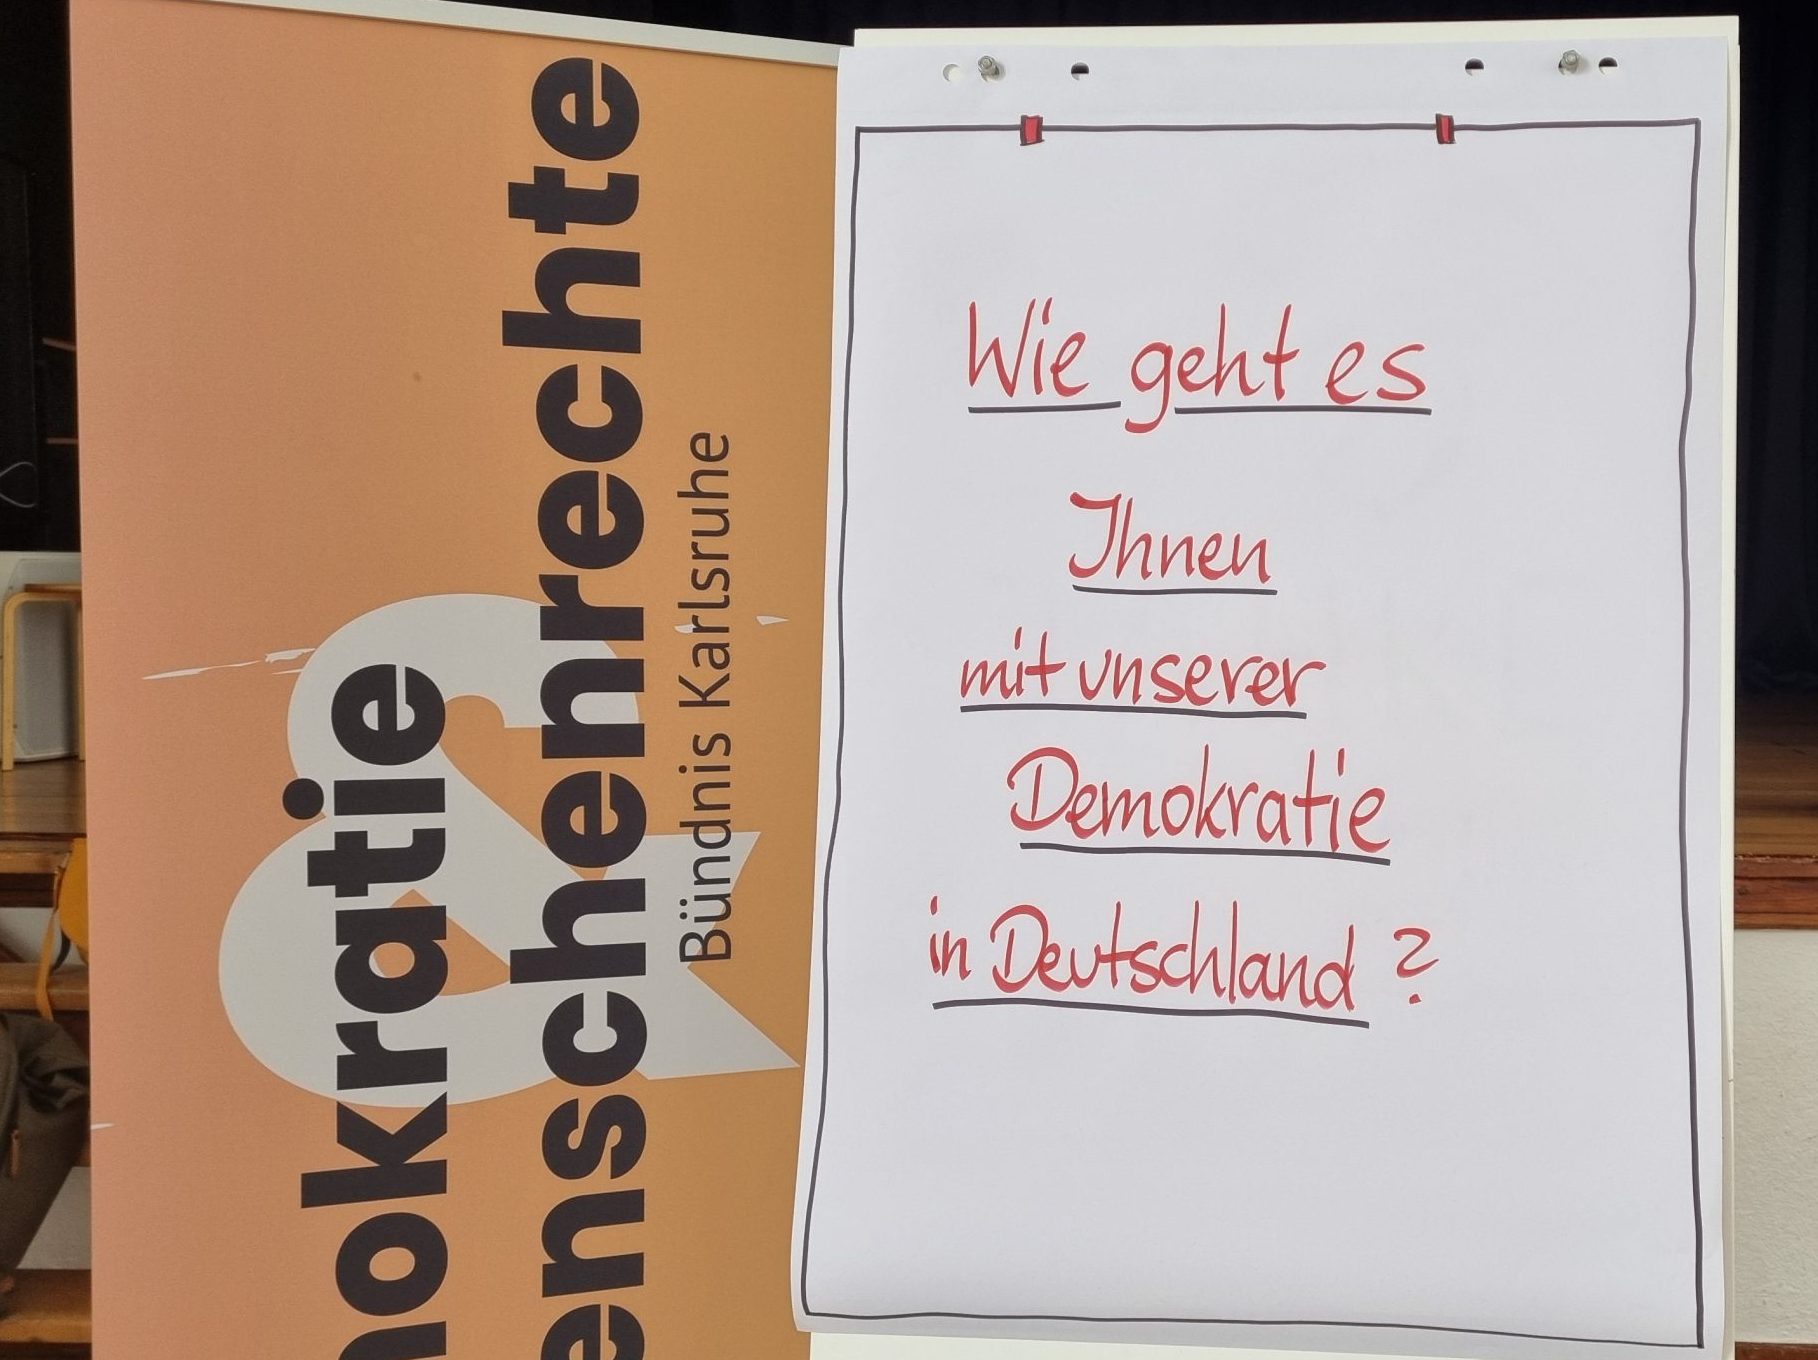 mokratie
enschenrechte
Bündnis Karlsruhe
&
Wie geht es
Ihnen
mit unserer
Demokratie
in Deutschland?